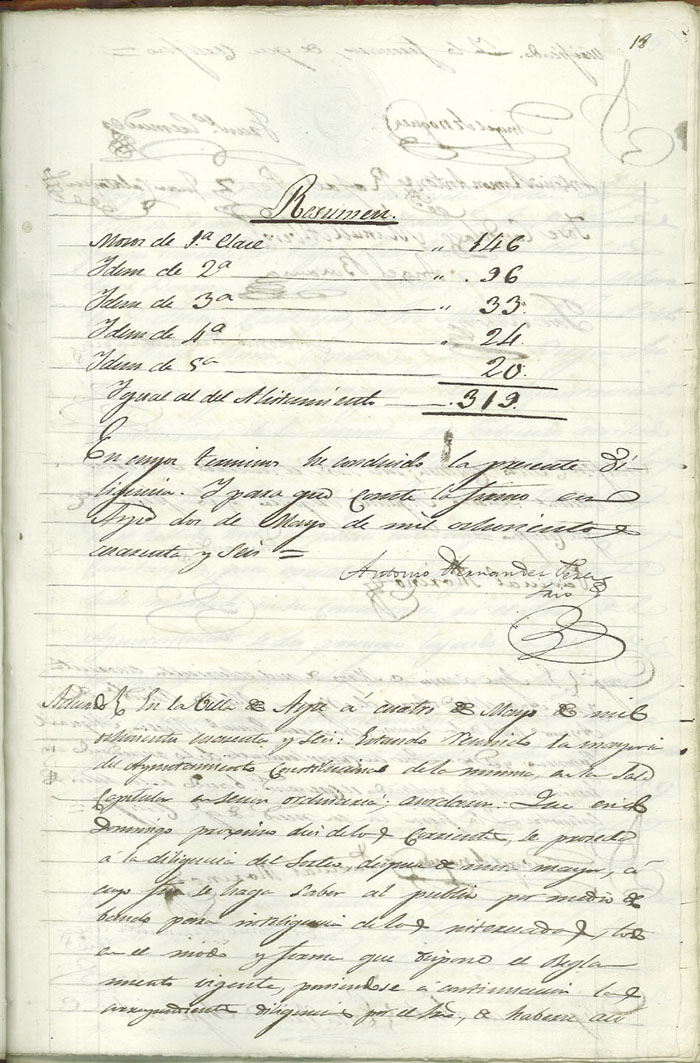 18
Resumen.
Mozos de 1.ª Clace „ 146
Idem de 2ª „ 96
Idem de 3ª „ 33.
Idem de 4ª „ 24.
Idem de 5ª 20.
Igual al del Alistamiento 319.
En cuyos terminos he concluido la presente di-
ligencia. Y para que conste la firmo en
Aspe dos de Mayo de mil ochocientos
cuarenta y seis =
Antonio Hernandez Perez
Srio
En la Villa de Aspe á cuatro de Mayo de mil
ochocientos cuarenta y seis: Estando reunido la mayoria
del Ayuntamiento Constitucional de la misma, en la Sala
Capitular en secion ordinaria; acordaron: Que en el
Domingo procsimo dies de los corriente, se proceda
á la diligencia del Sorteo, despues de misa mayor, á
cuyo fin se haga saber al publico por medio de
bando para inteligencia de los interesados, todo
en el modo y forma que dispone el Regla
mento vigente, poniendose a continuacion las
correspondientes diligencias por el Srio, de haberse